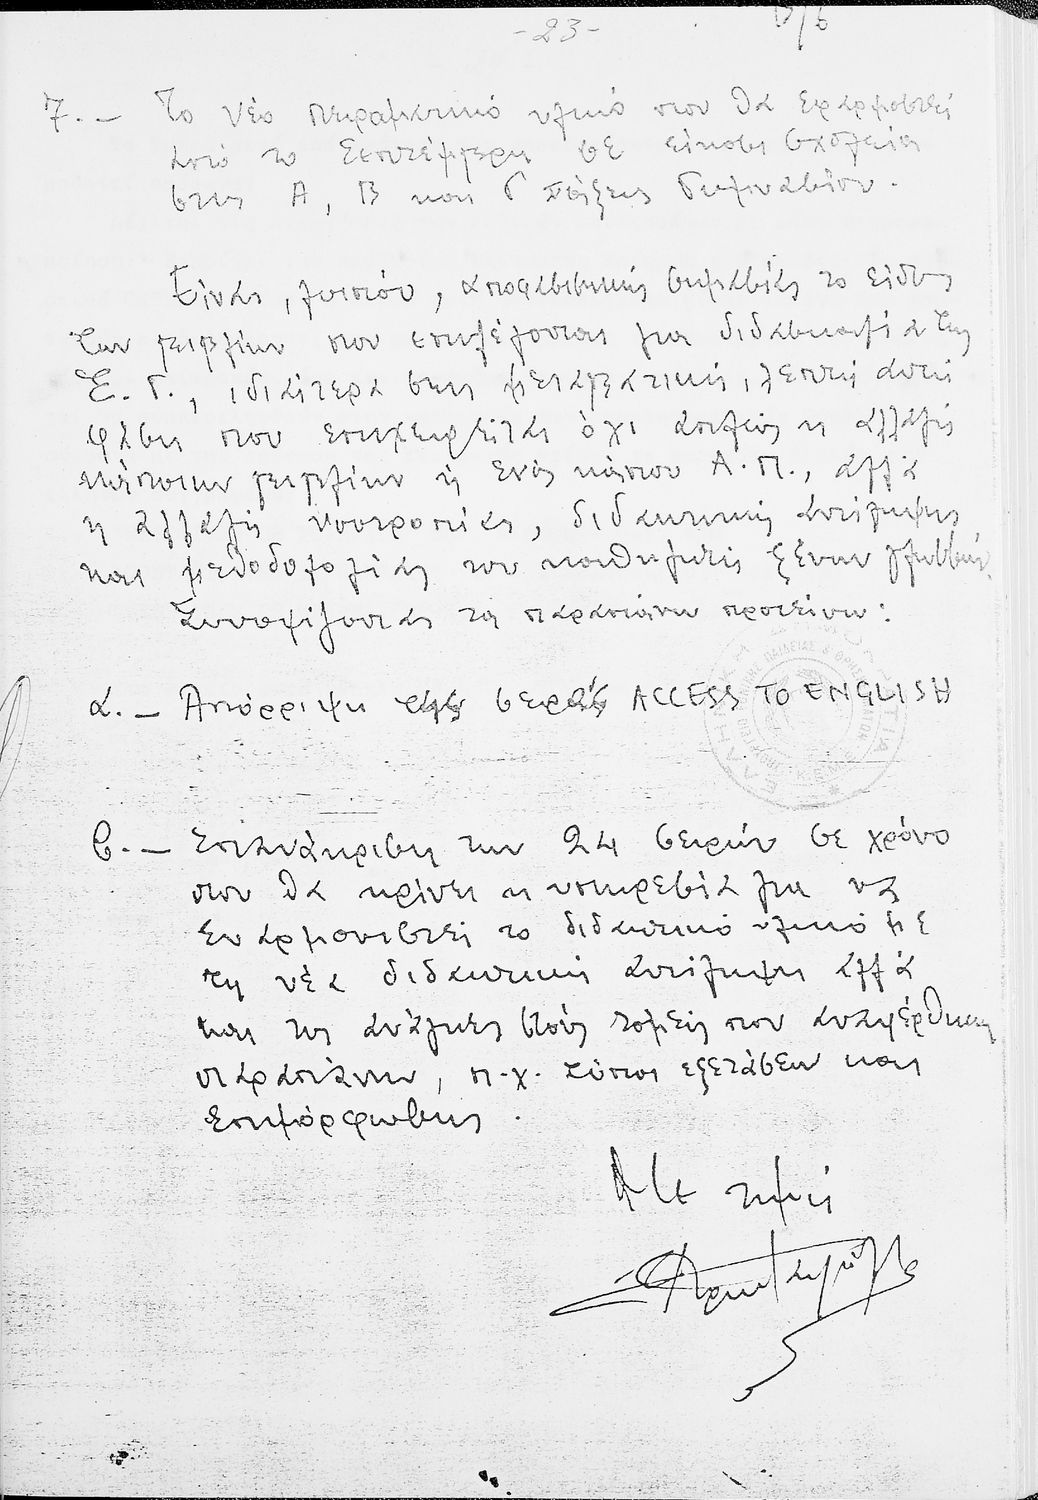 -23-
7.- Το νέο πειραματικό υλικό που θα εφαρμοστεί
από το Σεπτέμβρη σε είκοσι σχολεία
στις Α, Β και Γ τάξεις Γυμνασίου.
Είναι, λοιπόν, αποφασιστικής σημασίας το είδος
των βιβλίων που επιλέγονται για διδασκαλία της
Ξ.Γ., ιδιαίτερα στην μεταβατική, λεπτή αυτή
φάση που επιχειρείται όχι απλώς η αλλαγή
κάποιων βιβλίων ή ενός κάποιου Α.Π., αλλά
η αλλαγή νοοτροπίας, διδακτικής αντίληψης
και μεθοδολογίας του καθηγητή ξένων γλωσσών.
Συνοψίζοντας τα παραπάνω προτείνω:
α.- Απόρριψη της σειράς ACCESS TO ENGLISH
β.- Επανάκριση των 24 σειρών σε χρόνο
που θα κρίνει η υπηρεσία για να
εναρμονιστεί το διδακτικό υλικό με
τη νέα διδακτική αντίληψη αλλά
και τις ανάγκες στους τομείς που αναφέρθηκαν
παραπάνω, π.χ. τύποι εξετάσεων και
επιμόρφωσης.
Με τιμή